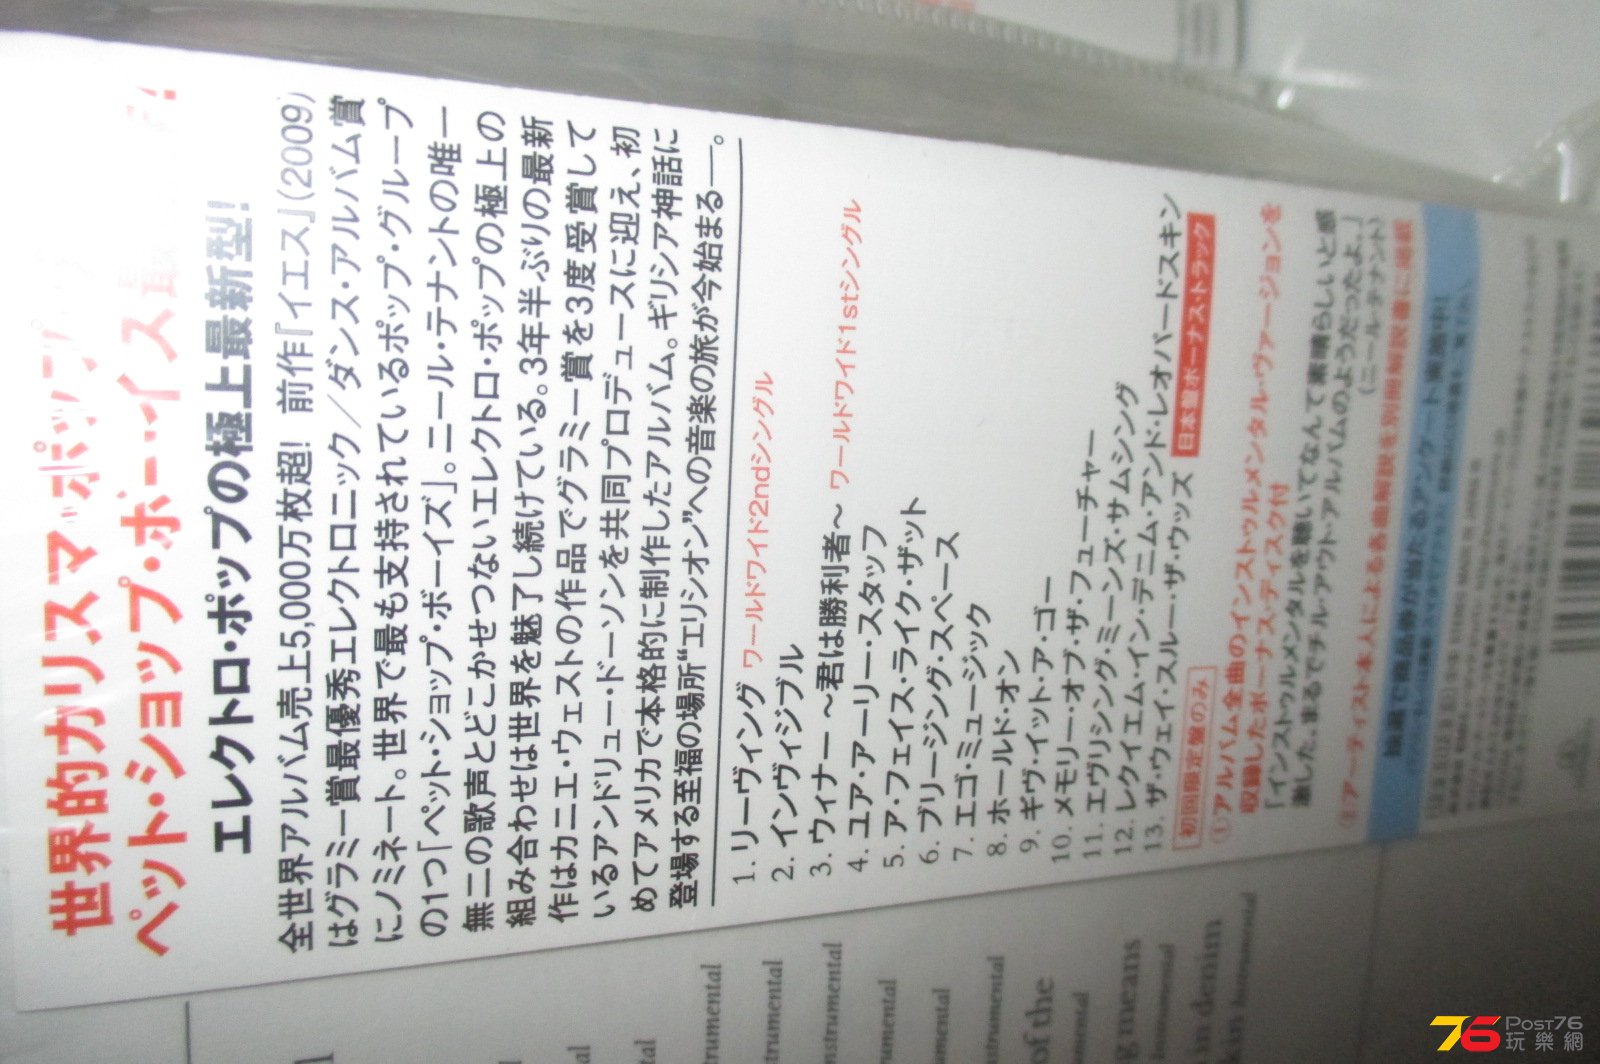 世界的カリスマ・ポップ
ペット・ショップ・ボーイズ
エレクトロ・ポップの極上最新型!
全世界アルバム売上5,000万枚超! 前作『イエス』(2009)
はグラミー賞最優秀エレクトロニック／ダンス・アルバム賞
にノミネート。世界で最も支持されているポップ・グループ
の1つ「ペット・ショップ・ボーイズ」。ニール・テナントの唯一
無二の歌声とどこかせつないエレクトロ・ポップの極上の
組み合わせは世界を魅了し続けている。3年半ぶりの最新
作はカニエ・ウェストの作品でグラミー賞を3度受賞して
いるアンドリュー・ドーソンを共同プロデュースに迎え、初
めてアメリカで本格的に制作したアルバム。ギリシア神話に
登場する至福の場所“エリシオン”への音楽の旅が今始まる―。
1. リーヴィング ワールドワイド2ndシングル
2. インヴィジブル
3. ウィナー ～君は勝利者～ ワールドワイド1stシングル
4. ユア・アーリー・スタッフ
5. ア・フェイス・ライク・ザット
6. ブリージング・スペース
7. エゴ・ミュージック
8. ホールド・オン
9. ギヴ・イット・ア・ゴー
10. メモリー・オブ・ザ・フューチャー
11. エヴリシング・ミーンズ・サムシング
12. レクイエム・イン・デニム・アンド・レオパードスキン
13. ザ・ウェイ・スルー・ザ・ウッズ 日本盤ボーナス・トラック
初回限定盤のみ
①アルバム全曲のインストゥルメンタル・ヴァージョンを
収録したボーナス・ディスク付
「インストゥルメンタルを聴いてなんて素晴らしいと感
激した。まるでチル・アウト・アルバムのようだったよ。」
(ニール・テナント)
②アーティスト本人による各曲解説を別冊解説書に掲載
抽選で商品券が当たるアンケート実施中!
strumental
umental
nstrumental
umental
mental
nstrumental
of the
mental
g means
in denim
kin
Post76
玩樂網